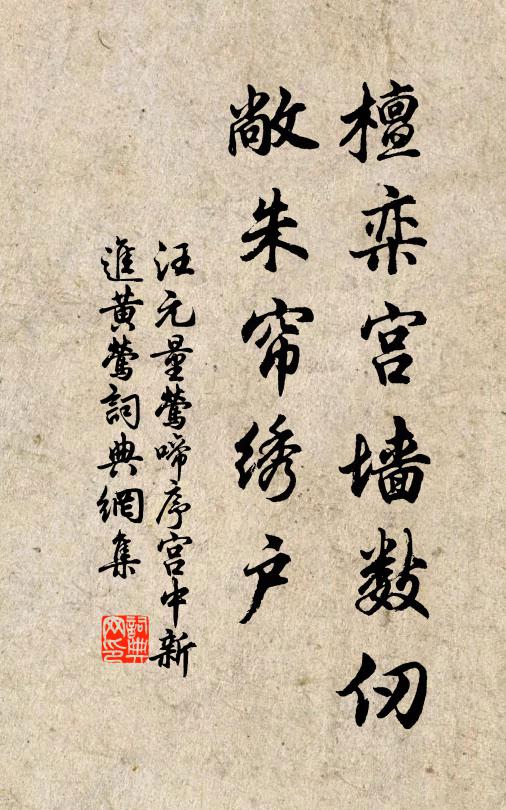 檀栾宫墙数仞
敞朱帘绣户
汪元量莺啼序宫中新
進黄莺詞典網集
詞典网印